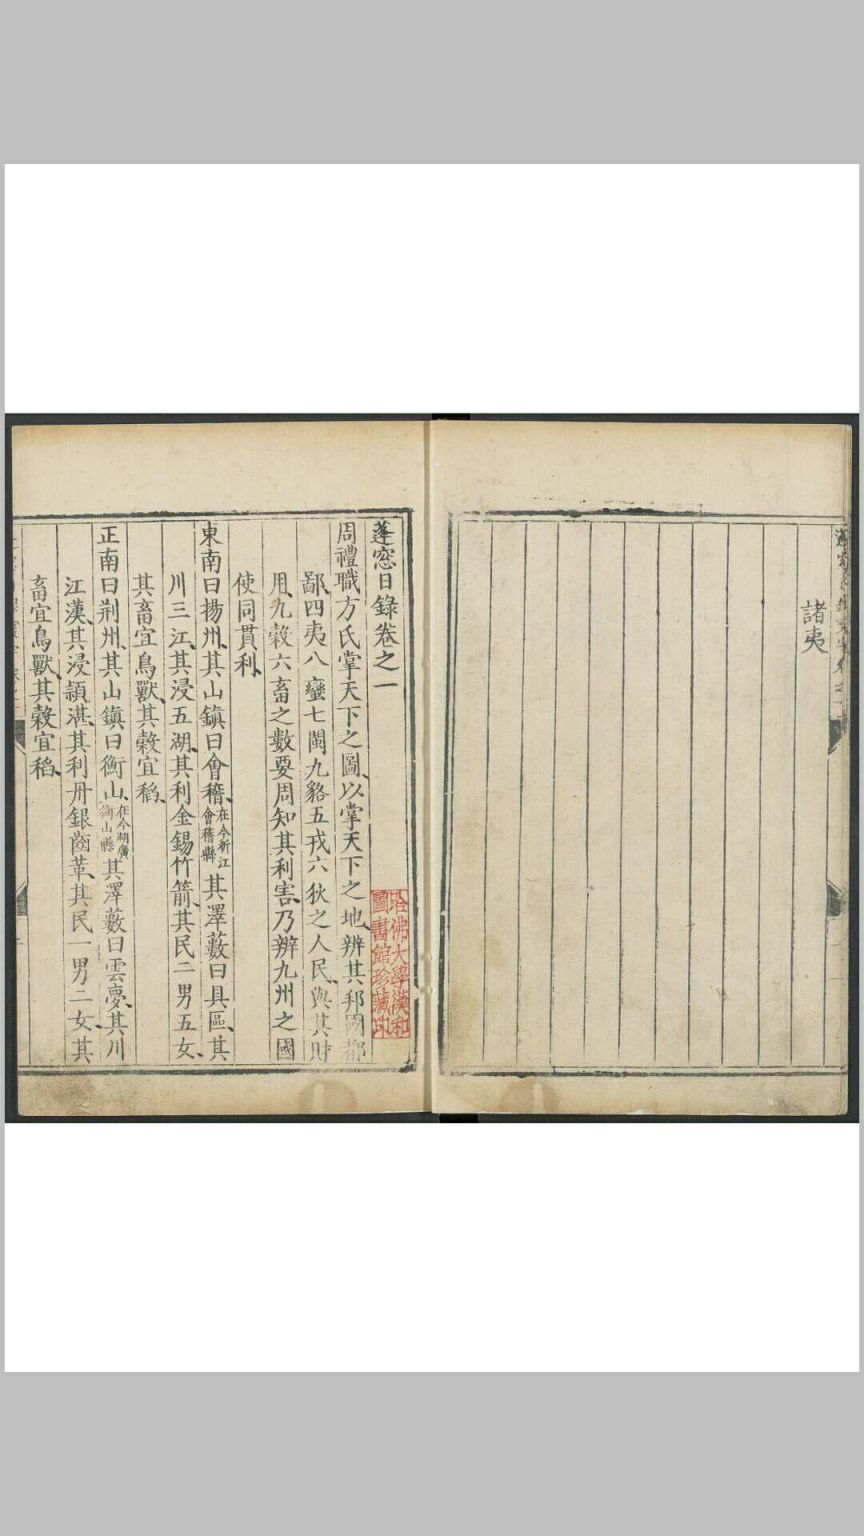 諸夷
蓬窓日録卷之一
周禮職方氏掌天下之圖以掌天下之地辨其邦國都
鄙四夷八蠻七閩九貉五戎六狄之人民與其財
用九穀六畜之數要周知其利害乃辨九州之國
使同貫利
東南曰揚州其山鎮曰會稽在今浙江會稽縣其澤藪曰具區其
川三江其浸五湖其利金錫竹箭其民二男五女
其畜宜鳥獸其穀宜稻
正南曰荆州其山鎮曰衡山在今湖廣衡山縣其澤藪曰雲夢其川
江漢其浸頴湛其利丹銀齒革其民一男二女其
畜宜鳥獸其穀宜稻
哈佛大學漢和
圖書館珍藏印